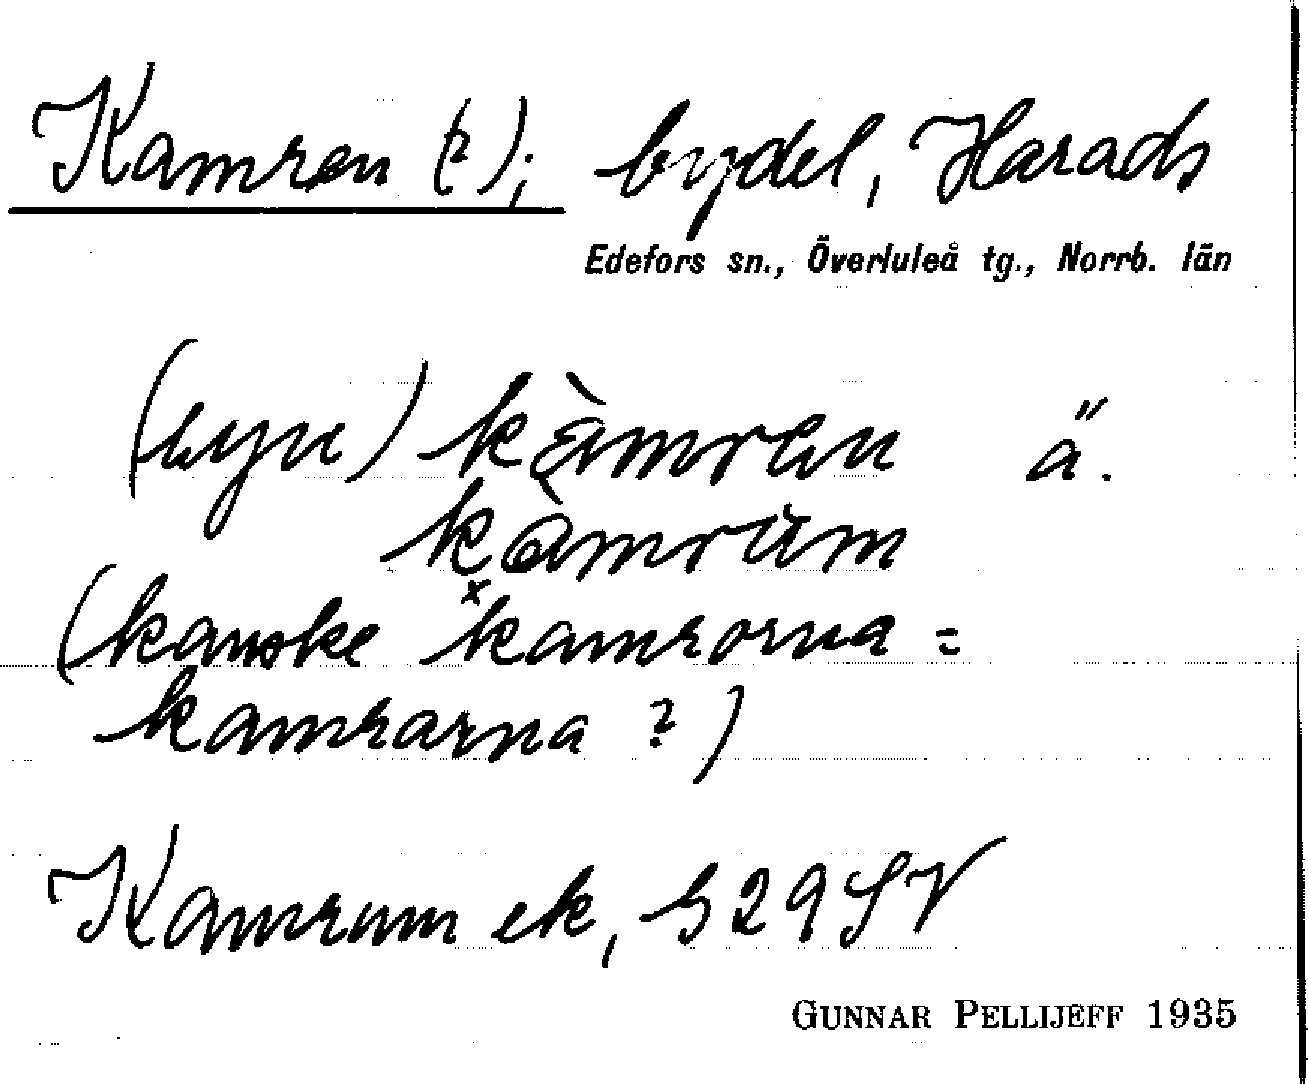 Kamren (?); bydel, Harads
Edefors sn., Överluleå tg., Norrb. län
kàmren ä.
kàmrum
(kanske ˣkamrorna =
kamrarna ?)
Kamrum ek, 29 SV
GUNNAR PELLIJEFF 1935